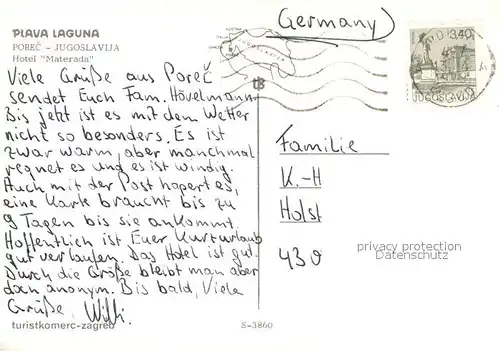 PLAVA LAGUNA
POREČ – JUGOSLAVIJA
Hotel "Materada"
Viele Grüße aus Poreč
sendet Euch Fam. Hövelmann.
Bis jetzt ist es mit dem Wetter
nicht so besonders. Es ist
zwar warm, aber manchmal
regnet es und es ist windig.
Auch mit der Post hapert es,
eine Karte braucht bis zu
9 Tagen bis sie ankommt.
Hoffentlich ist Euer Kurzurlaub
gut verlaufen. Das Hotel ist gut.
Durch die Größe bleibt man aber
doch anonym. Bis bald, Viele
Grüße, Willi.
turistkomerc-zagreb
S-3860
(Germany)
JUGOSLAVIJA
3.40
JUGOSLAVIJA
Familie
K.-H
Holst
430
privacy protection
Datenschutz